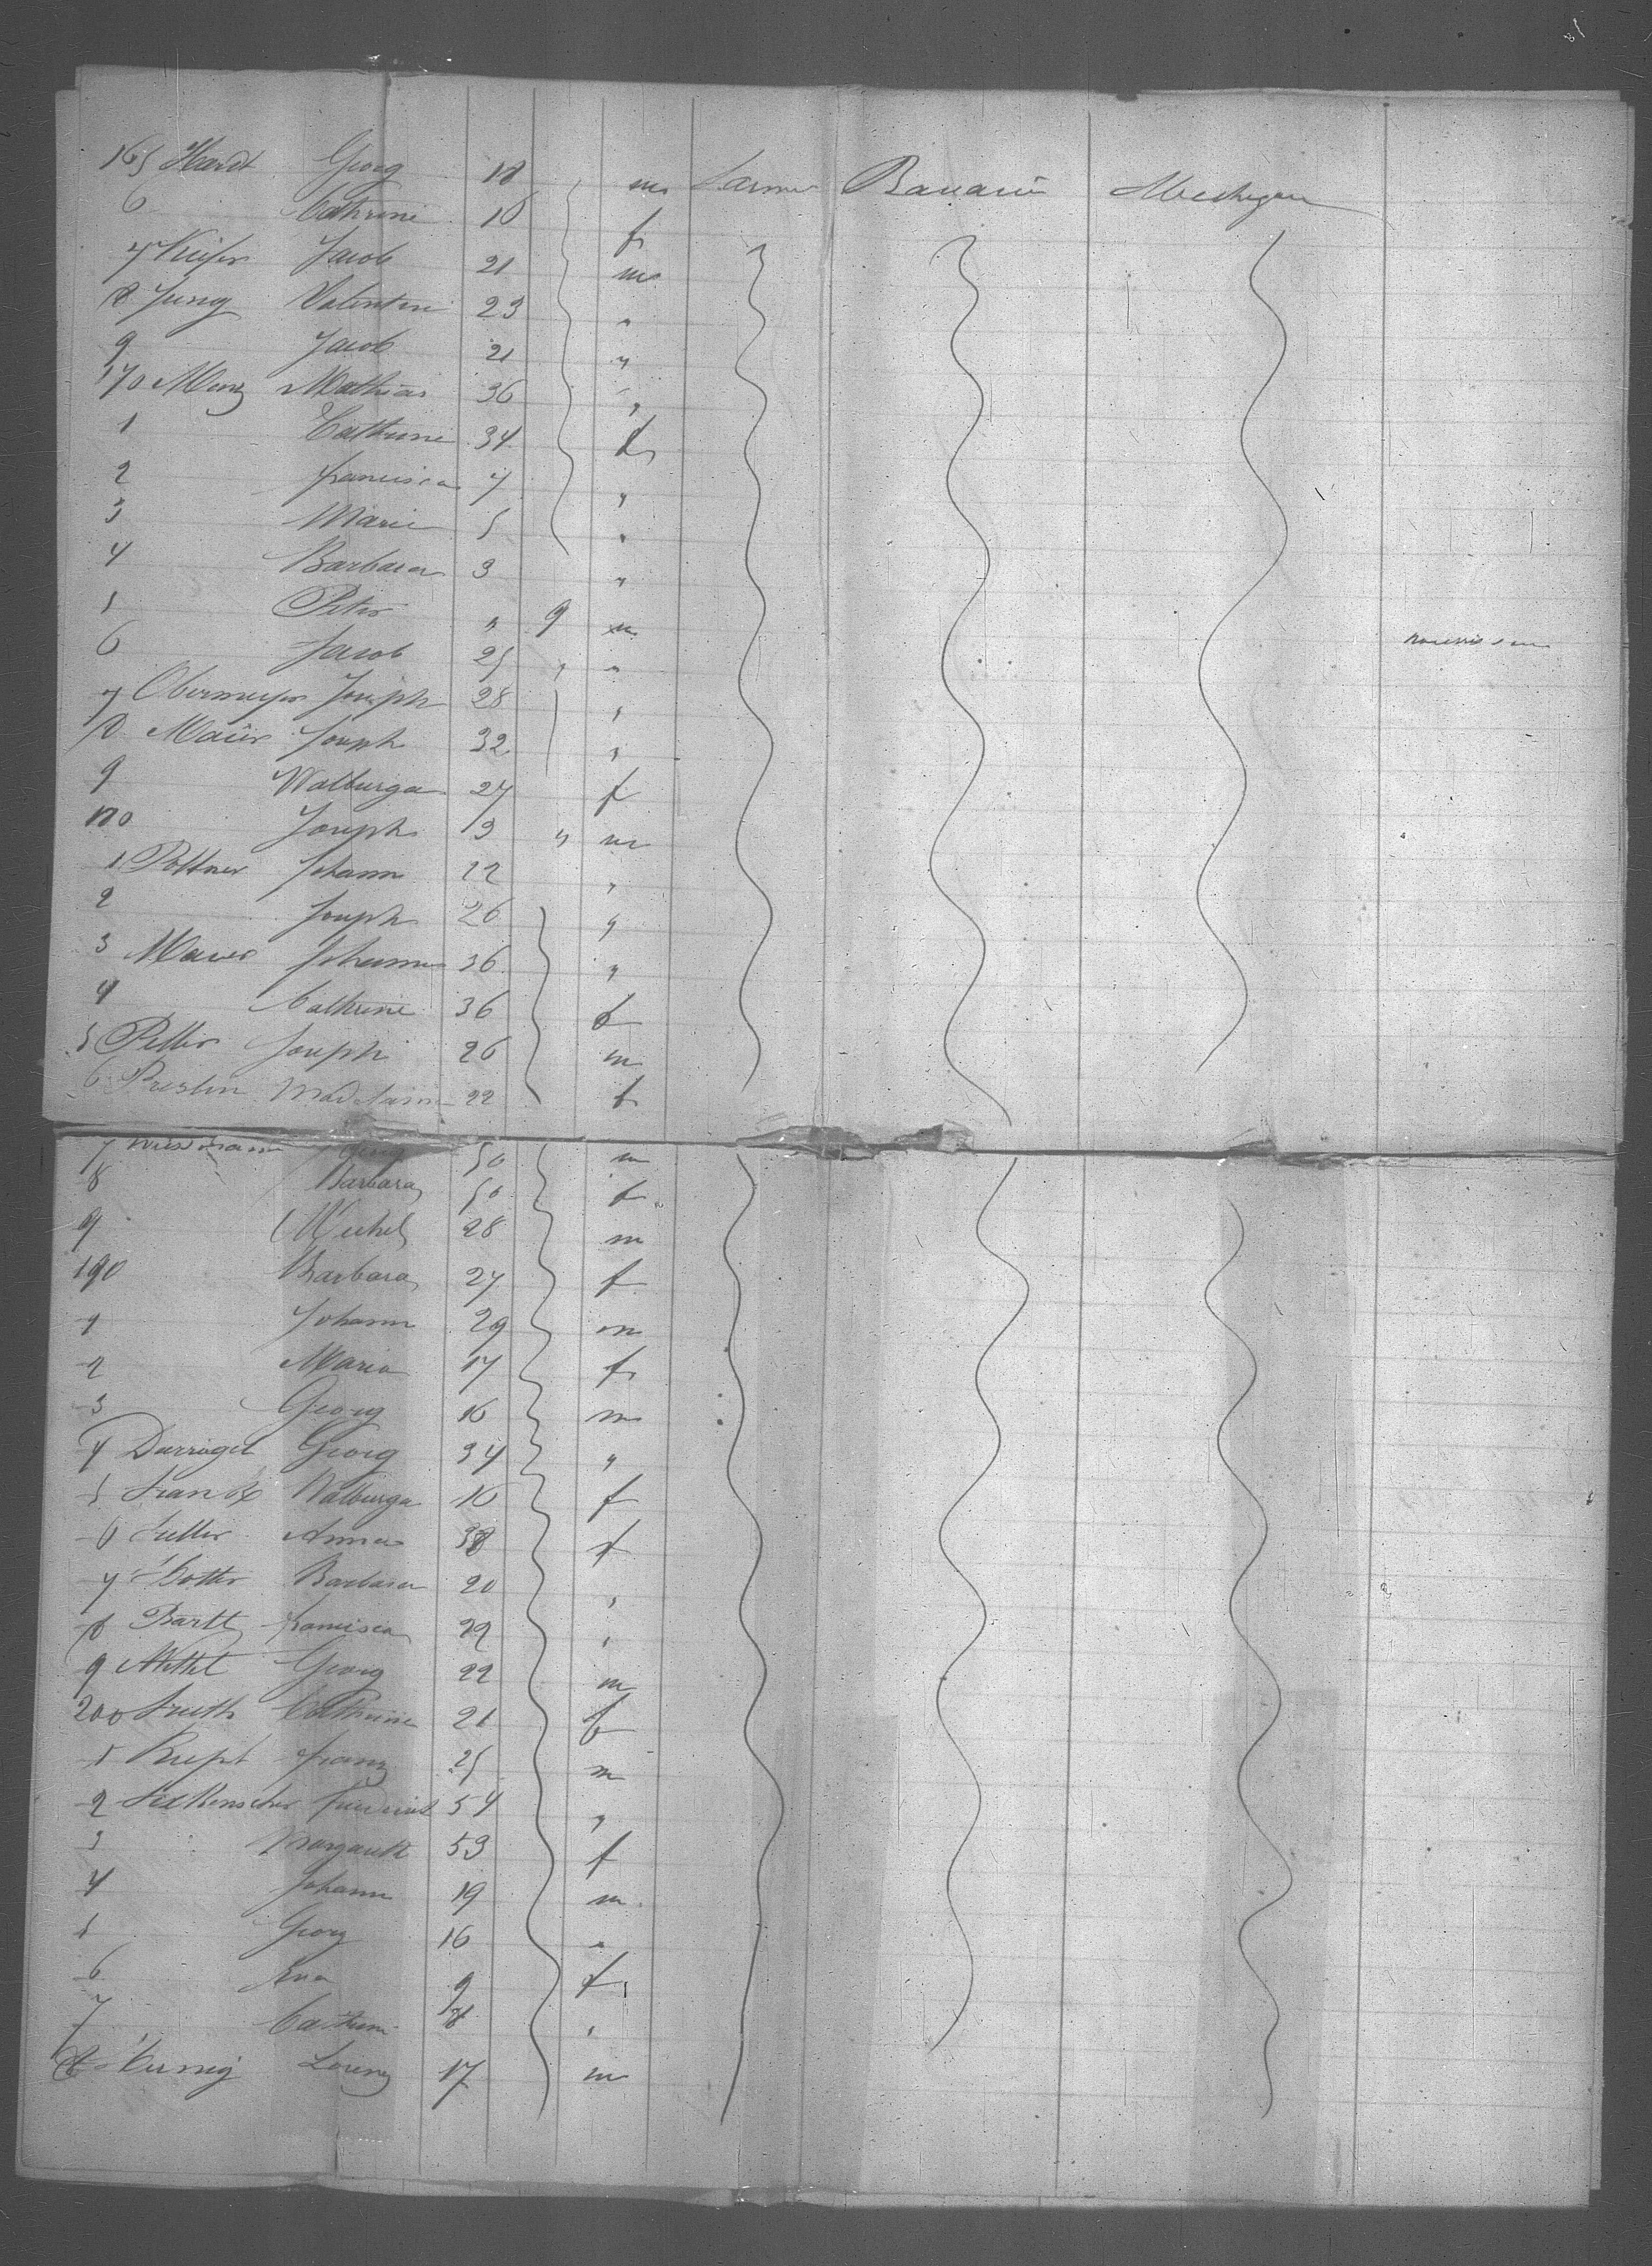 165 Hardt Georg 18 m Farmer Bavaria Mechigan
6 Cathrine 16 f
7 Keifer Jacob 21 m
8 Jung Valentin 23 "
9 Jacob 21 "
170 Menz Mathias 36 "
1 Cathrine 34 f
2 Francisca 7 "
3 Marie 5 "
4 Barbara 3 "
5 Peter " 9 m
6 Jacob 25 " "
7 Obermeyer Joseph 28 "
8 Maier Joseph 32 "
9 Walburga 27 f
180 Joseph 3 " m
1 Pottner Johann 22 "
2 Joseph 26 "
3 Maurer Johann 36 "
4 Cathrine 36 f
5 Peller Joseph 26 m
6 22 f
7 Georg 50 m
8 Barbara 50 f
9 Michel 28 m
190 Barbara 27 f
1 Johann 29 m
2 Maria 17 f
3 Georg 16 m
4 Georg 34 "
5 Frank Walburga 16 f
6 Anna 38 f
7 Barbara 20 "
8 Bartt Francisca 22 "
9 Georg 22 m
200 Cathrine 21 f
1 Franz 25 m
2 Frederick 54 "
3 Margareth 53 f
4 Johann 19 m
5 Georg 16 "
6 Eva 9 f
7 Cathrine 8 "
8 Lorenz 17 m